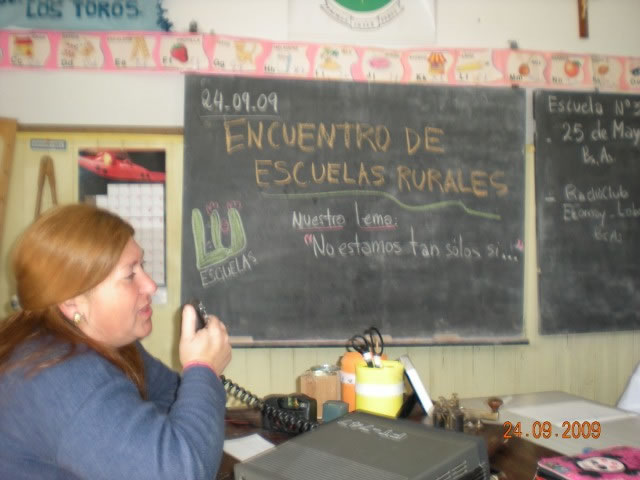 LOS TOROS
24.09.09
ENCUENTRO DE
ESCUELAS RURALES
Nuestro lema:
"No estamos tan solos si..."
ESCUELAS
Escuela Nº
25 de May
Bs. As.
- Radio Club
24.09.2009